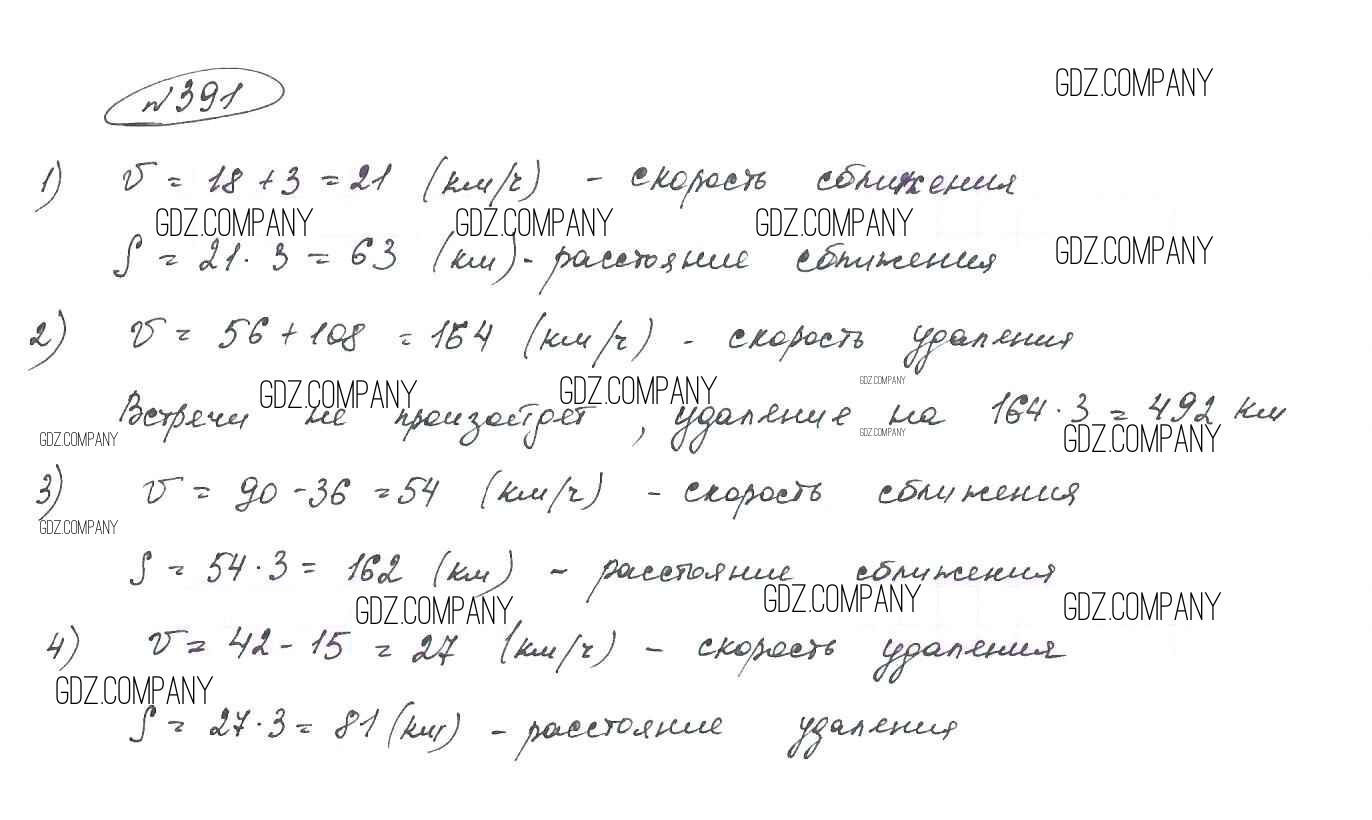 GDZ.COMPANY
№391
1) v = 18 + 3 = 21 (км/ч) - скорость сближения
GDZ.COMPANY GDZ.COMPANY GDZ.COMPANY
GDZ.COMPANY
S = 21 · 3 = 63 (км) - расстояние сближения
2) v = 56 + 108 = 164 (км/ч) - скорость удаления
GDZ.COMPANY GDZ.COMPANY GDZ.COMPANY
Встречи не произойдет, удаление на 164 · 3 = 492 км
GDZ.COMPANY GDZ.COMPANY GDZ.COMPANY
3) v = 90 - 36 = 54 (км/ч) - скорость сближения
GDZ.COMPANY
S = 54 · 3 = 162 (км) - расстояние сближения
GDZ.COMPANY GDZ.COMPANY GDZ.COMPANY
4) v = 42 - 15 = 27 (км/ч) - скорость удаления
GDZ.COMPANY
S = 27 · 3 = 81 (км) - расстояние удаления